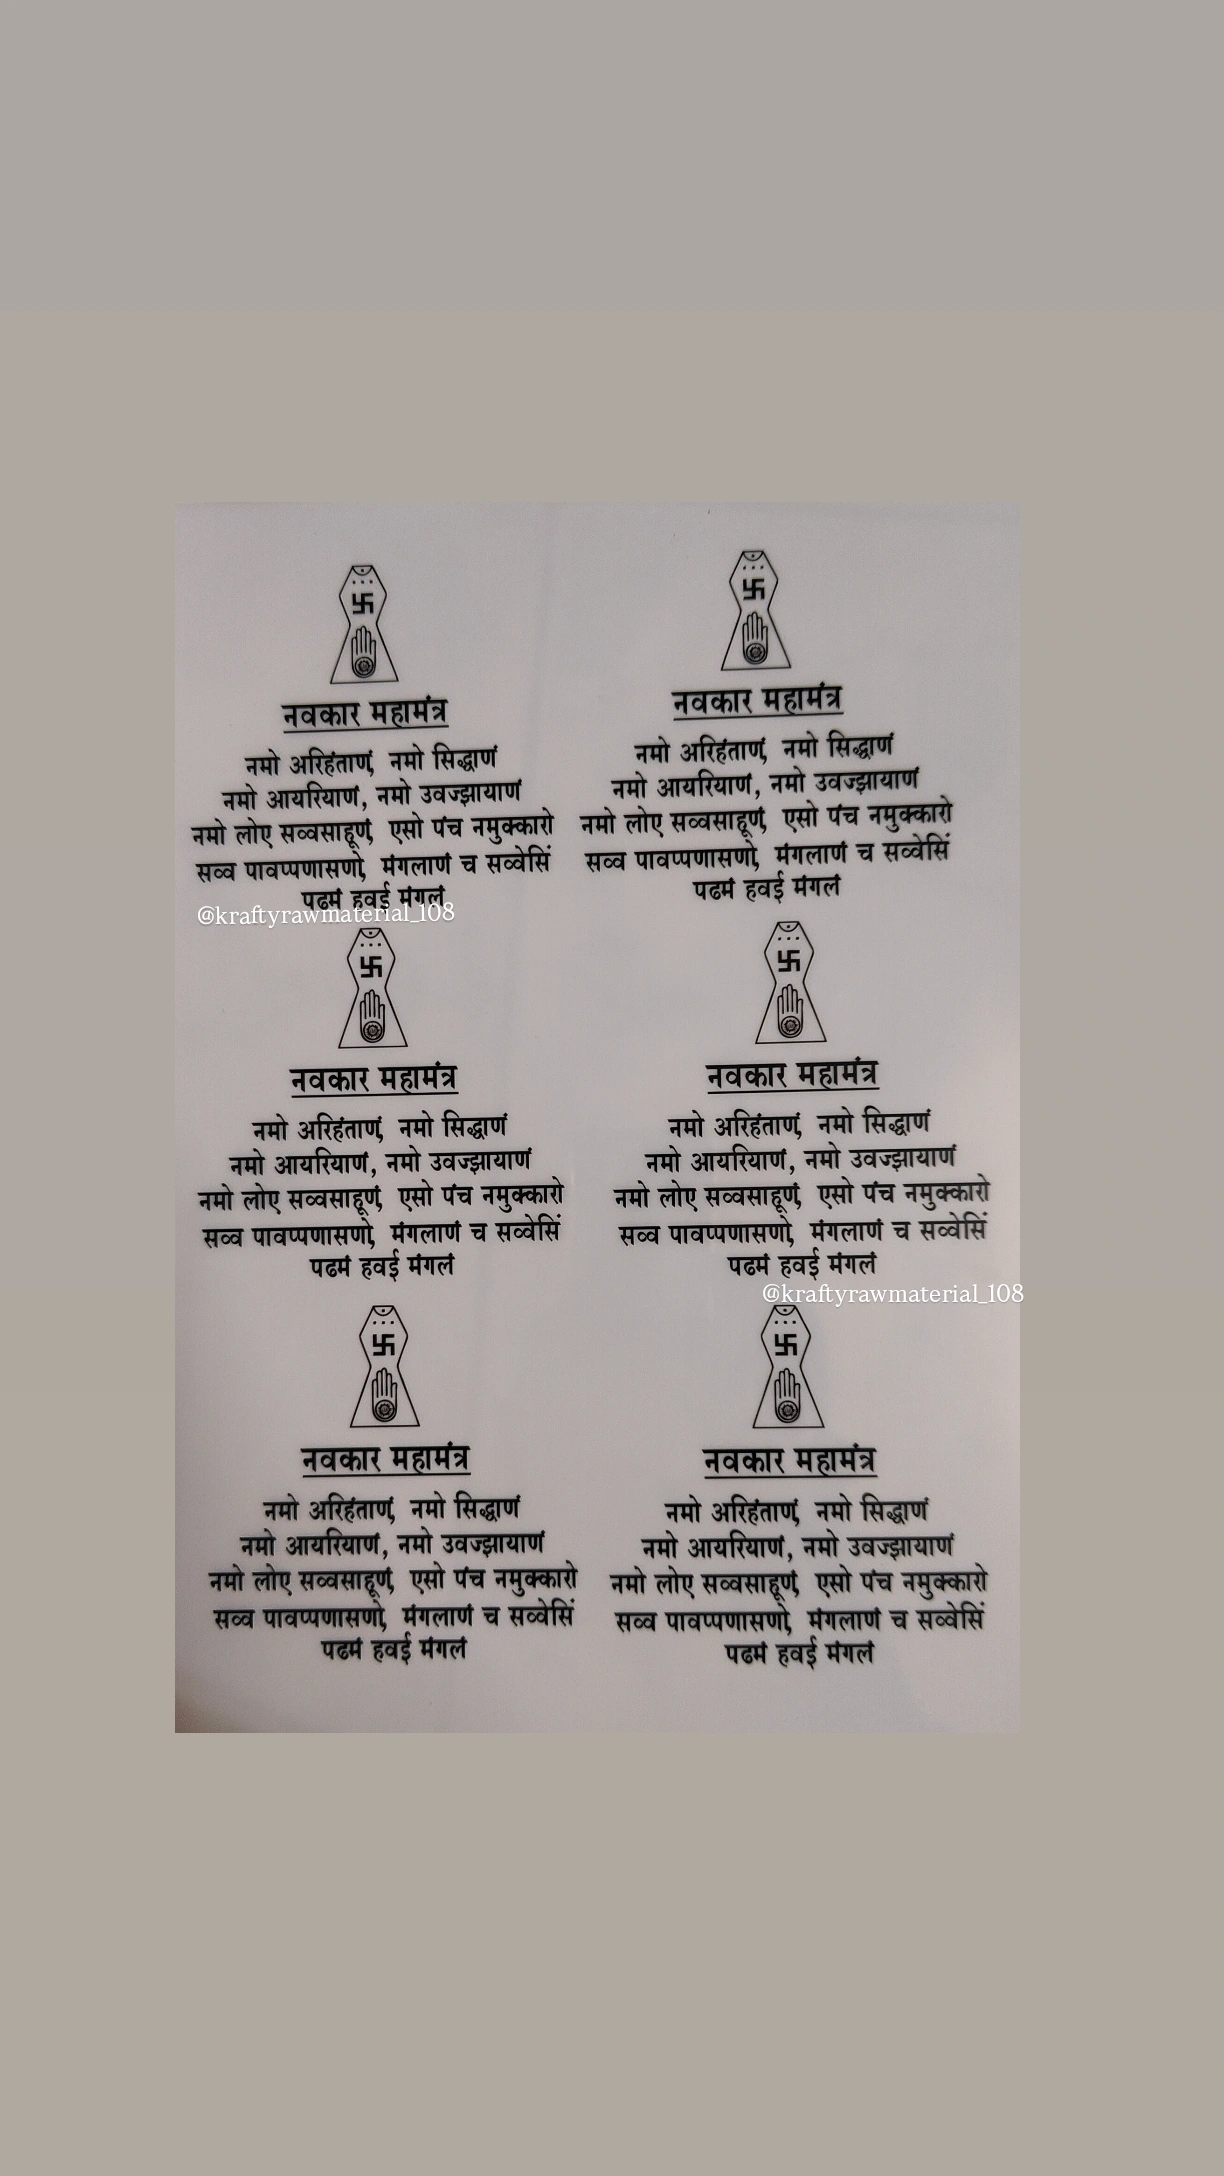 नवकार महामंत्र
नमो अरिहंताणं, नमो सिद्धाणं
नमो आयरियाणं, नमो उवज्झायाणं
नमो लोए सव्वसाहूणं, एसो पंच नमुक्कारो
सव्व पावप्पणासणो, मंगलाणं च सव्वेसिं
पढमं हवई मंगलं
@kraftyrawmaterial_108
नवकार महामंत्र
नमो अरिहंताणं, नमो सिद्धाणं
नमो आयरियाणं, नमो उवज्झायाणं
नमो लोए सव्वसाहूणं, एसो पंच नमुक्कारो
सव्व पावप्पणासणो, मंगलाणं च सव्वेसिं
पढमं हवई मंगलं
नवकार महामंत्र
नमो अरिहंताणं, नमो सिद्धाणं
नमो आयरियाणं, नमो उवज्झायाणं
नमो लोए सव्वसाहूणं, एसो पंच नमुक्कारो
सव्व पावप्पणासणो, मंगलाणं च सव्वेसिं
पढमं हवई मंगलं
नवकार महामंत्र
नमो अरिहंताणं, नमो सिद्धाणं
नमो आयरियाणं, नमो उवज्झायाणं
नमो लोए सव्वसाहूणं, एसो पंच नमुक्कारो
सव्व पावप्पणासणो, मंगलाणं च सव्वेसिं
पढमं हवई मंगलं
@kraftyrawmaterial_108
नवकार महामंत्र
नमो अरिहंताणं, नमो सिद्धाणं
नमो आयरियाणं, नमो उवज्झायाणं
नमो लोए सव्वसाहूणं, एसो पंच नमुक्कारो
सव्व पावप्पणासणो, मंगलाणं च सव्वेसिं
पढमं हवई मंगलं
नवकार महामंत्र
नमो अरिहंताणं, नमो सिद्धाणं
नमो आयरियाणं, नमो उवज्झायाणं
नमो लोए सव्वसाहूणं, एसो पंच नमुक्कारो
सव्व पावप्पणासणो, मंगलाणं च सव्वेसिं
पढमं हवई मंगलं